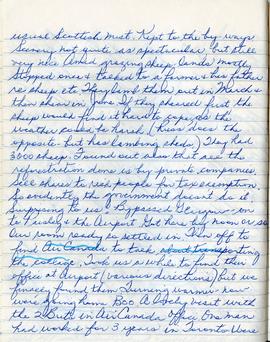 usual Scottish mist. Kept to the by-ways
Scenery not quite as spectacular, but still
very nice Amid grazing sheep lands mostly
Stopped once & talked to a farmer & his father
re sheep etc They lamb them out in March &
then shear in June If they sheared first the
sheep would find it hard to cope, as the
weather so harsh. (Russ does the
opposite but has lambing sheds) They had
3000 sheep. Found out also that all the
reforestration done is by private companies.
Sell shares to rich people for tax exemption.
So evidently the government doesn't do it.
Surprising to us. Bypassed Glasgow - on
to the Airport. Got here
our room ready so settled in Then off to
find Air Canada to
the cottage. Took us a while to find their
office at Airport (various directions) but we
finally found them Turning warmer now
were going home. Boo A lovely visit with
the 2 Butts in Air Canada office One man
had worked for 3 years in Toronto Were